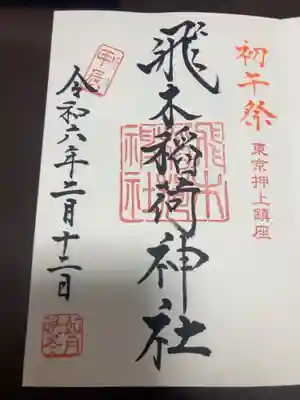 初午祭
東京押上鎮座
飛木稲荷神社
飛木稲荷神社
甲辰
令和六年二月十二日